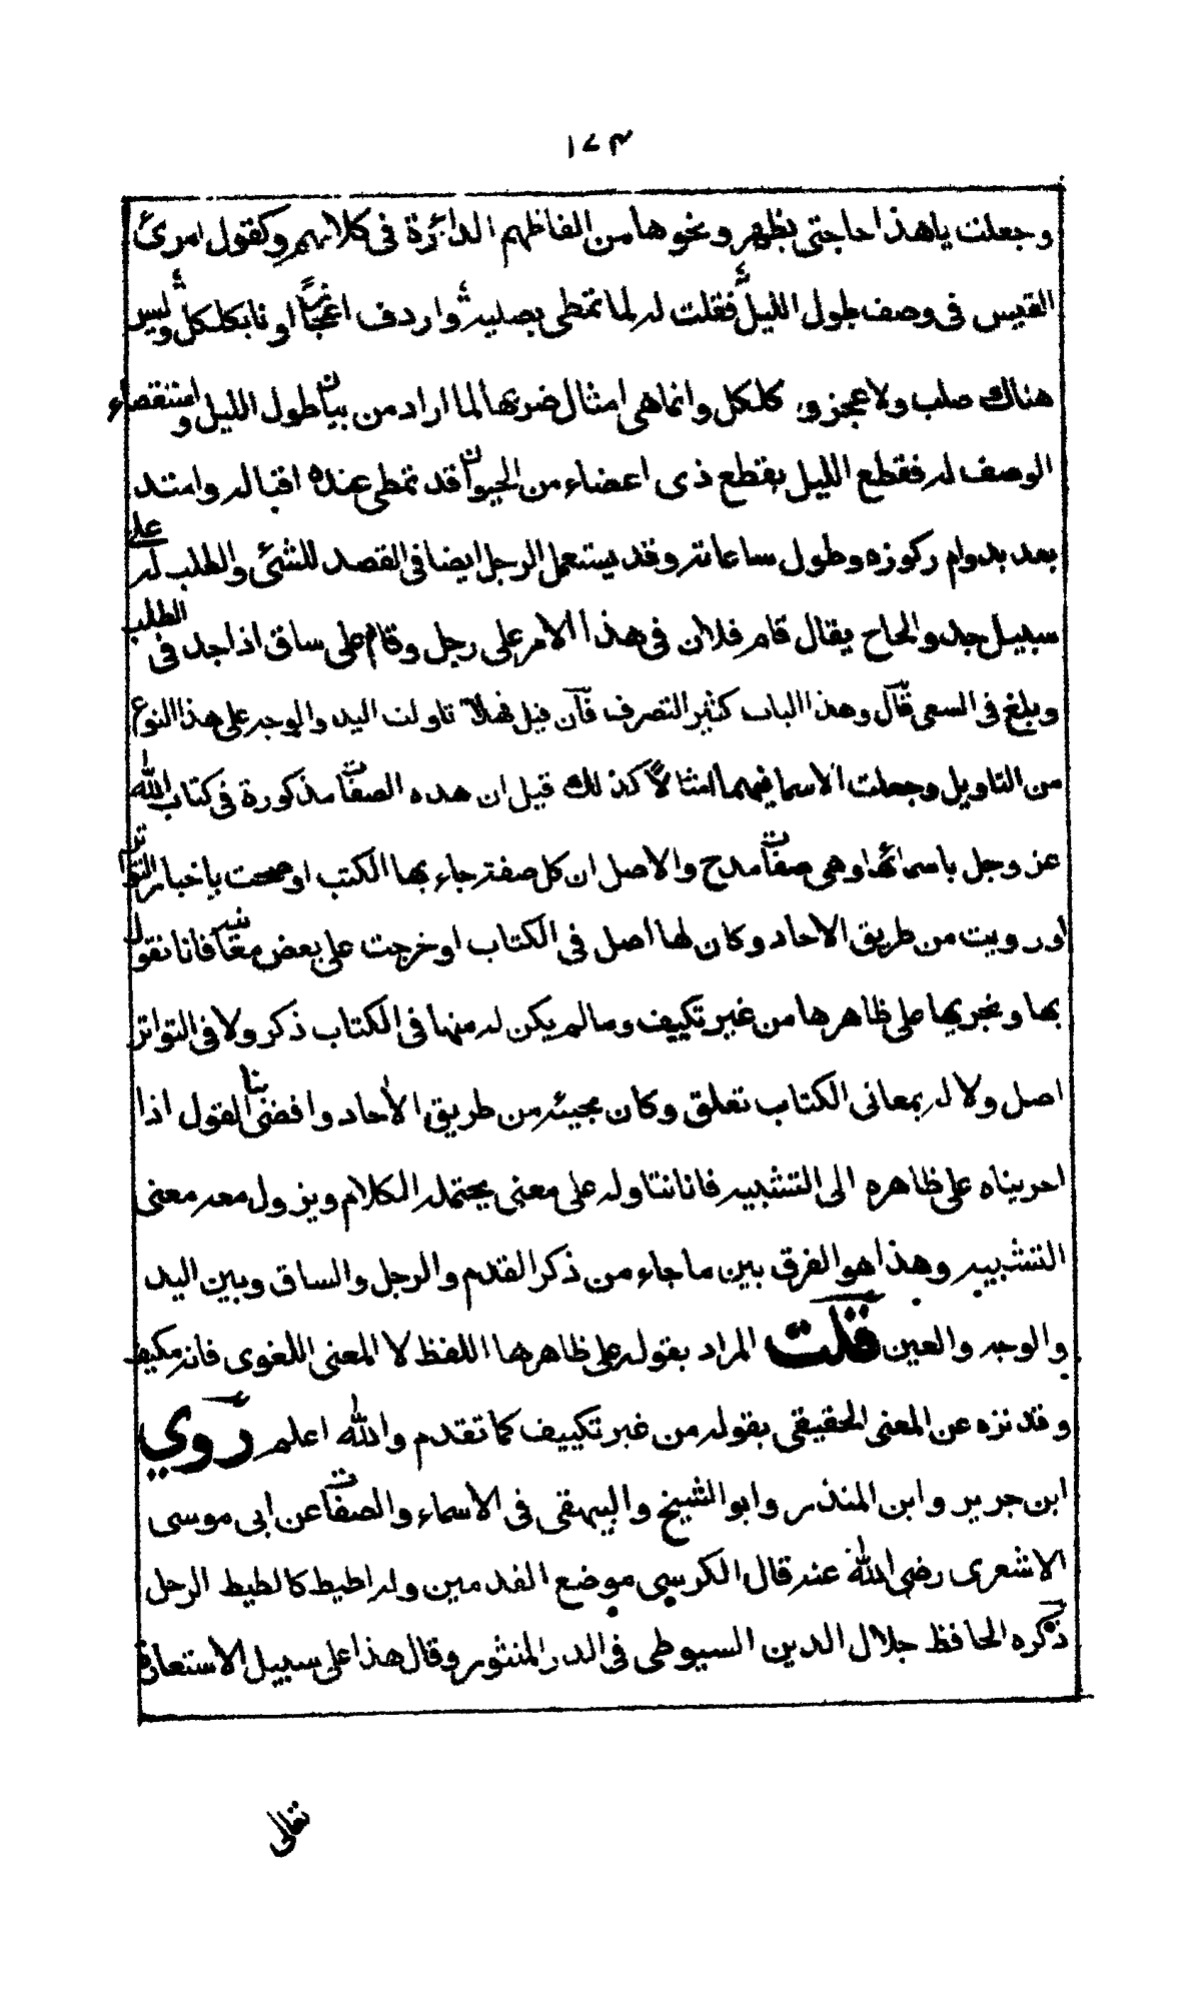 ١٧٣
وجعلت ياهذا حاجتى بظهر ونحوها من الفاظهم الدائرة فى كلامهم وكقول امرئ
القيس فى وصف طول الليل فقلت له لما تمطى بصلبه واردف اعجازا وناء بكلكل وليس
هناك صلب ولا عجز و كلكل وانما هى امثال ضربها لما اراد من بيان طول الليل واستقصاء
الوصف له فقطع الليل بقطع ذى اعضاء من الحيوان قد تمطى عنده اقباله وامتد
بعد بدوام ركوزه وطول ساعاته وقد يستعمل الرجل ايضا فى القصد للشئ والطلب له على
سبيل جد والحاح يقال قام فلان فى هذا الامر على رجل وقام على ساق اذا جد فى الطلب
وبلغ فى السعى قال وهذا الباب كثير التصرف فان قيل فهلا تاولت اليد والوجه على هذا النوع
من التاويل وجعلت الاسما فيهما امثالا كذلك قيل ان هده الصفات مذكورة فى كتاب الله
عز وجل باسمائها وهى صفات مدح والاصل ان كل صفة جاء بها الكتب او صحت باخبار التواتر
اورويت من طريق الاحاد وكان لها اصل فى الكتاب اوخرجت على بعض معانيه فانا نقول
بها ونجريها على ظاهرها من غير تكييف ومالم يكن له منها فى الكتاب ذكر ولا فى التواتر
اصل ولا له بمعانى الكتاب تعلق وكان مجيئه من طريق الاحاد وافضى بنا القول اذا
اجريناه على ظاهره الى التشبيه فانا نتاوله على معنى يحتمله الكلام ويزول معه معنى
التشبيه وهذا هو الفرق بين ما جاء من ذكر القدم والرجل والساق وبين اليد
والوجه والعين قلت المراد بقوله على ظاهرها اللفظ لا المعنى اللغوى فانه مكيف
وقد نزه عن المعنى الحقيقى بقوله من غير تكييف كما تقدم والله اعلم روي
ابن جرير وابن المنذر وابو الشيخ والبيهقى فى الاسماء والصفات عن ابى موسى
الاشعرى رضى الله عنه قال الكرسى موضع القدمين وله اطيط كاطيط الرحل
ذكره الحافظ جلال الدين السيوطى فى الدر المنثور وقال هذا على سبيل الاستعارة
تعالى